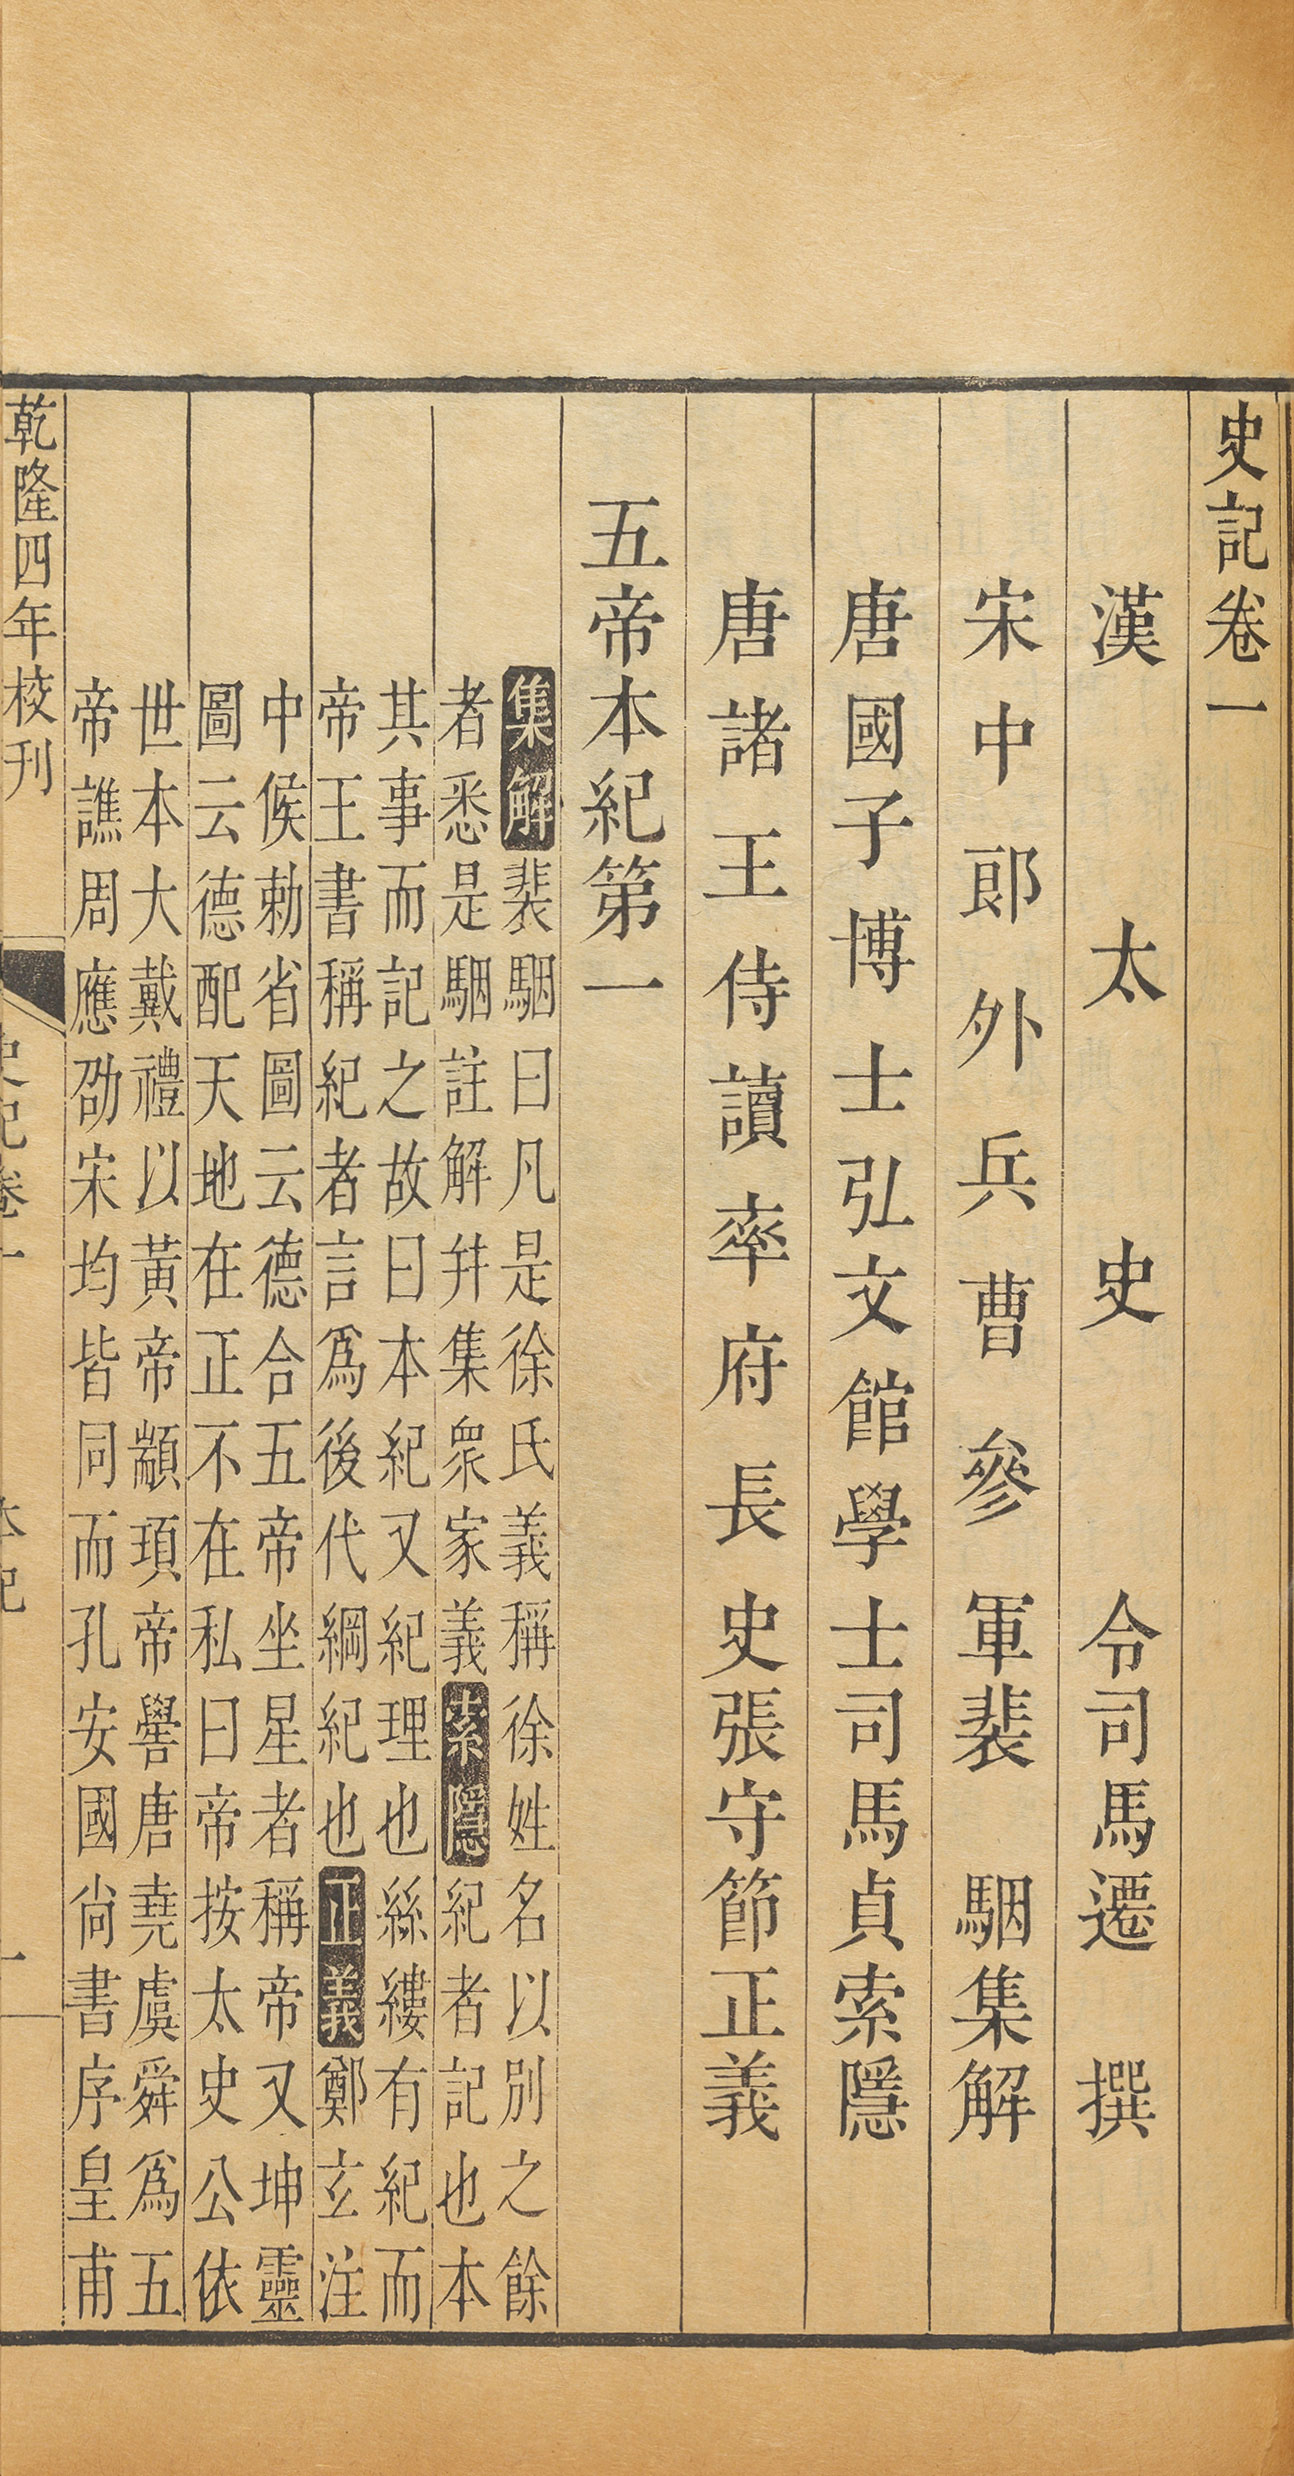 史記卷一
漢太史令司馬遷撰
宋中郎外兵曹參軍裴駰集解
唐國子博士弘文館學士司馬貞索隱
唐諸王侍讀率府長史張守節正義
五帝本紀第一
集解裴駰曰凡是徐氏義稱徐姓名以別之餘
者悉是駰註解并集衆家義索隱紀者記也本
其事而記之故曰本紀又紀理也絲縷有紀而
帝王書稱紀者言爲後代綱紀也正義鄭玄注
中候勅省圖云德合五帝坐星者稱帝又坤靈
圖云德配天地在正不在私曰帝按太史公依
世本大戴禮以黃帝顓頊帝嚳唐堯虞舜爲五
帝譙周應劭宋均皆同而孔安國尙書序皇甫
乾隆四年校刊
史記卷一
本紀
一